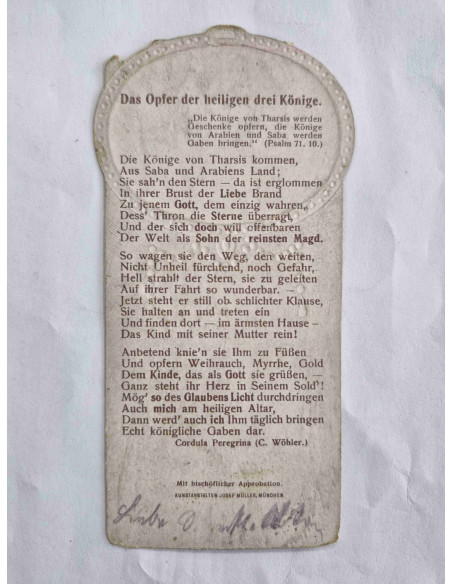 Das Opfer der heiligen drei Könige.
„Die Könige von Tharsis werden
Geschenke opfern, die Könige
von Arabien und Saba werden
Gaben bringen.“ (Psalm 71. 10.)
Die Könige von Tharsis kommen,
Aus Saba und Arabiens Land;
Sie sah'n den Stern — da ist erglommen
In ihrer Brust der Liebe Brand
Zu jenem Gott, dem einzig wahren,
Dess' Thron die Sterne überragt,
Und der sich doch will offenbaren
Der Welt als Sohn der reinsten Magd.
So wagen sie den Weg, den weiten,
Nicht Unheil fürchtend, noch Gefahr,
Hell strahlt der Stern, sie zu geleiten
Auf ihrer Fahrt so wunderbar. —
Jetzt steht er still ob schlichter Klause,
Sie halten an und treten ein
Und finden dort — im ärmsten Hause —
Das Kind mit seiner Mutter rein!
Anbetend knie'n sie Ihm zu Füßen
Und opfern Weihrauch, Myrrhe, Gold
Dem Kinde, das als Gott sie grüßen, —
Ganz steht ihr Herz in Seinem Sold'!
Mög' so des Glaubens Licht durchdringen
Auch mich am heiligen Altar,
Dann werd' auch ich Ihm täglich bringen
Echt königliche Gaben dar.
Cordula Peregrina (C. Wöhler.)
Mit bischöflicher Approbation.
KUNSTANSTALTEN JOSEF MÜLLER, MÜNCHEN